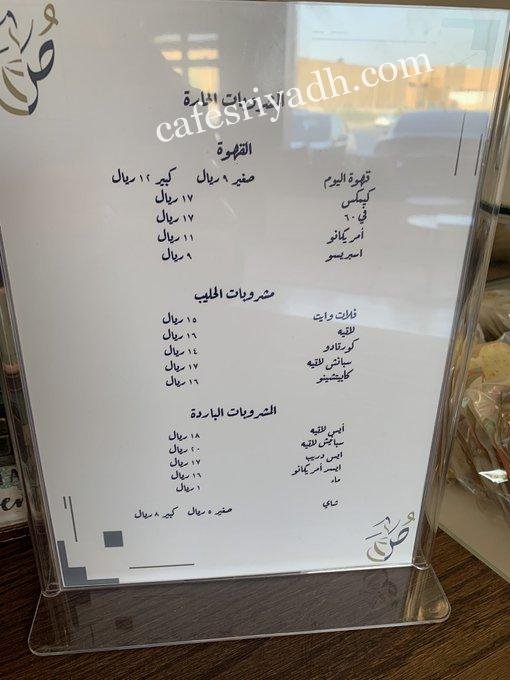 المشروبات الحارة
cafesriyadh.com
القهوة
قهوة اليوم صغير ٩ ريال كبير ١٢ ريال
كيمكس ١٧ ريال
في ٦٠ ١٧ ريال
أمريكانو ١١ ريال
اسبريسو ٩ ريال
مشروبات الحليب
فلات وايت ١٥ ريال
لاتيه ١٦ ريال
كورتادو ١٤ ريال
سبانش لاتيه ١٧ ريال
كابيتشينو ١٦ ريال
المشروبات الباردة
آيس لاتيه ١٨ ريال
سبانش لاتيه ٢٠ ريال
ايس دريب ١٧ ريال
ايسد أمريكانو ١٦ ريال
ماء ١ ريال
شاي صغير ٥ ريال كبير ٨ ريال